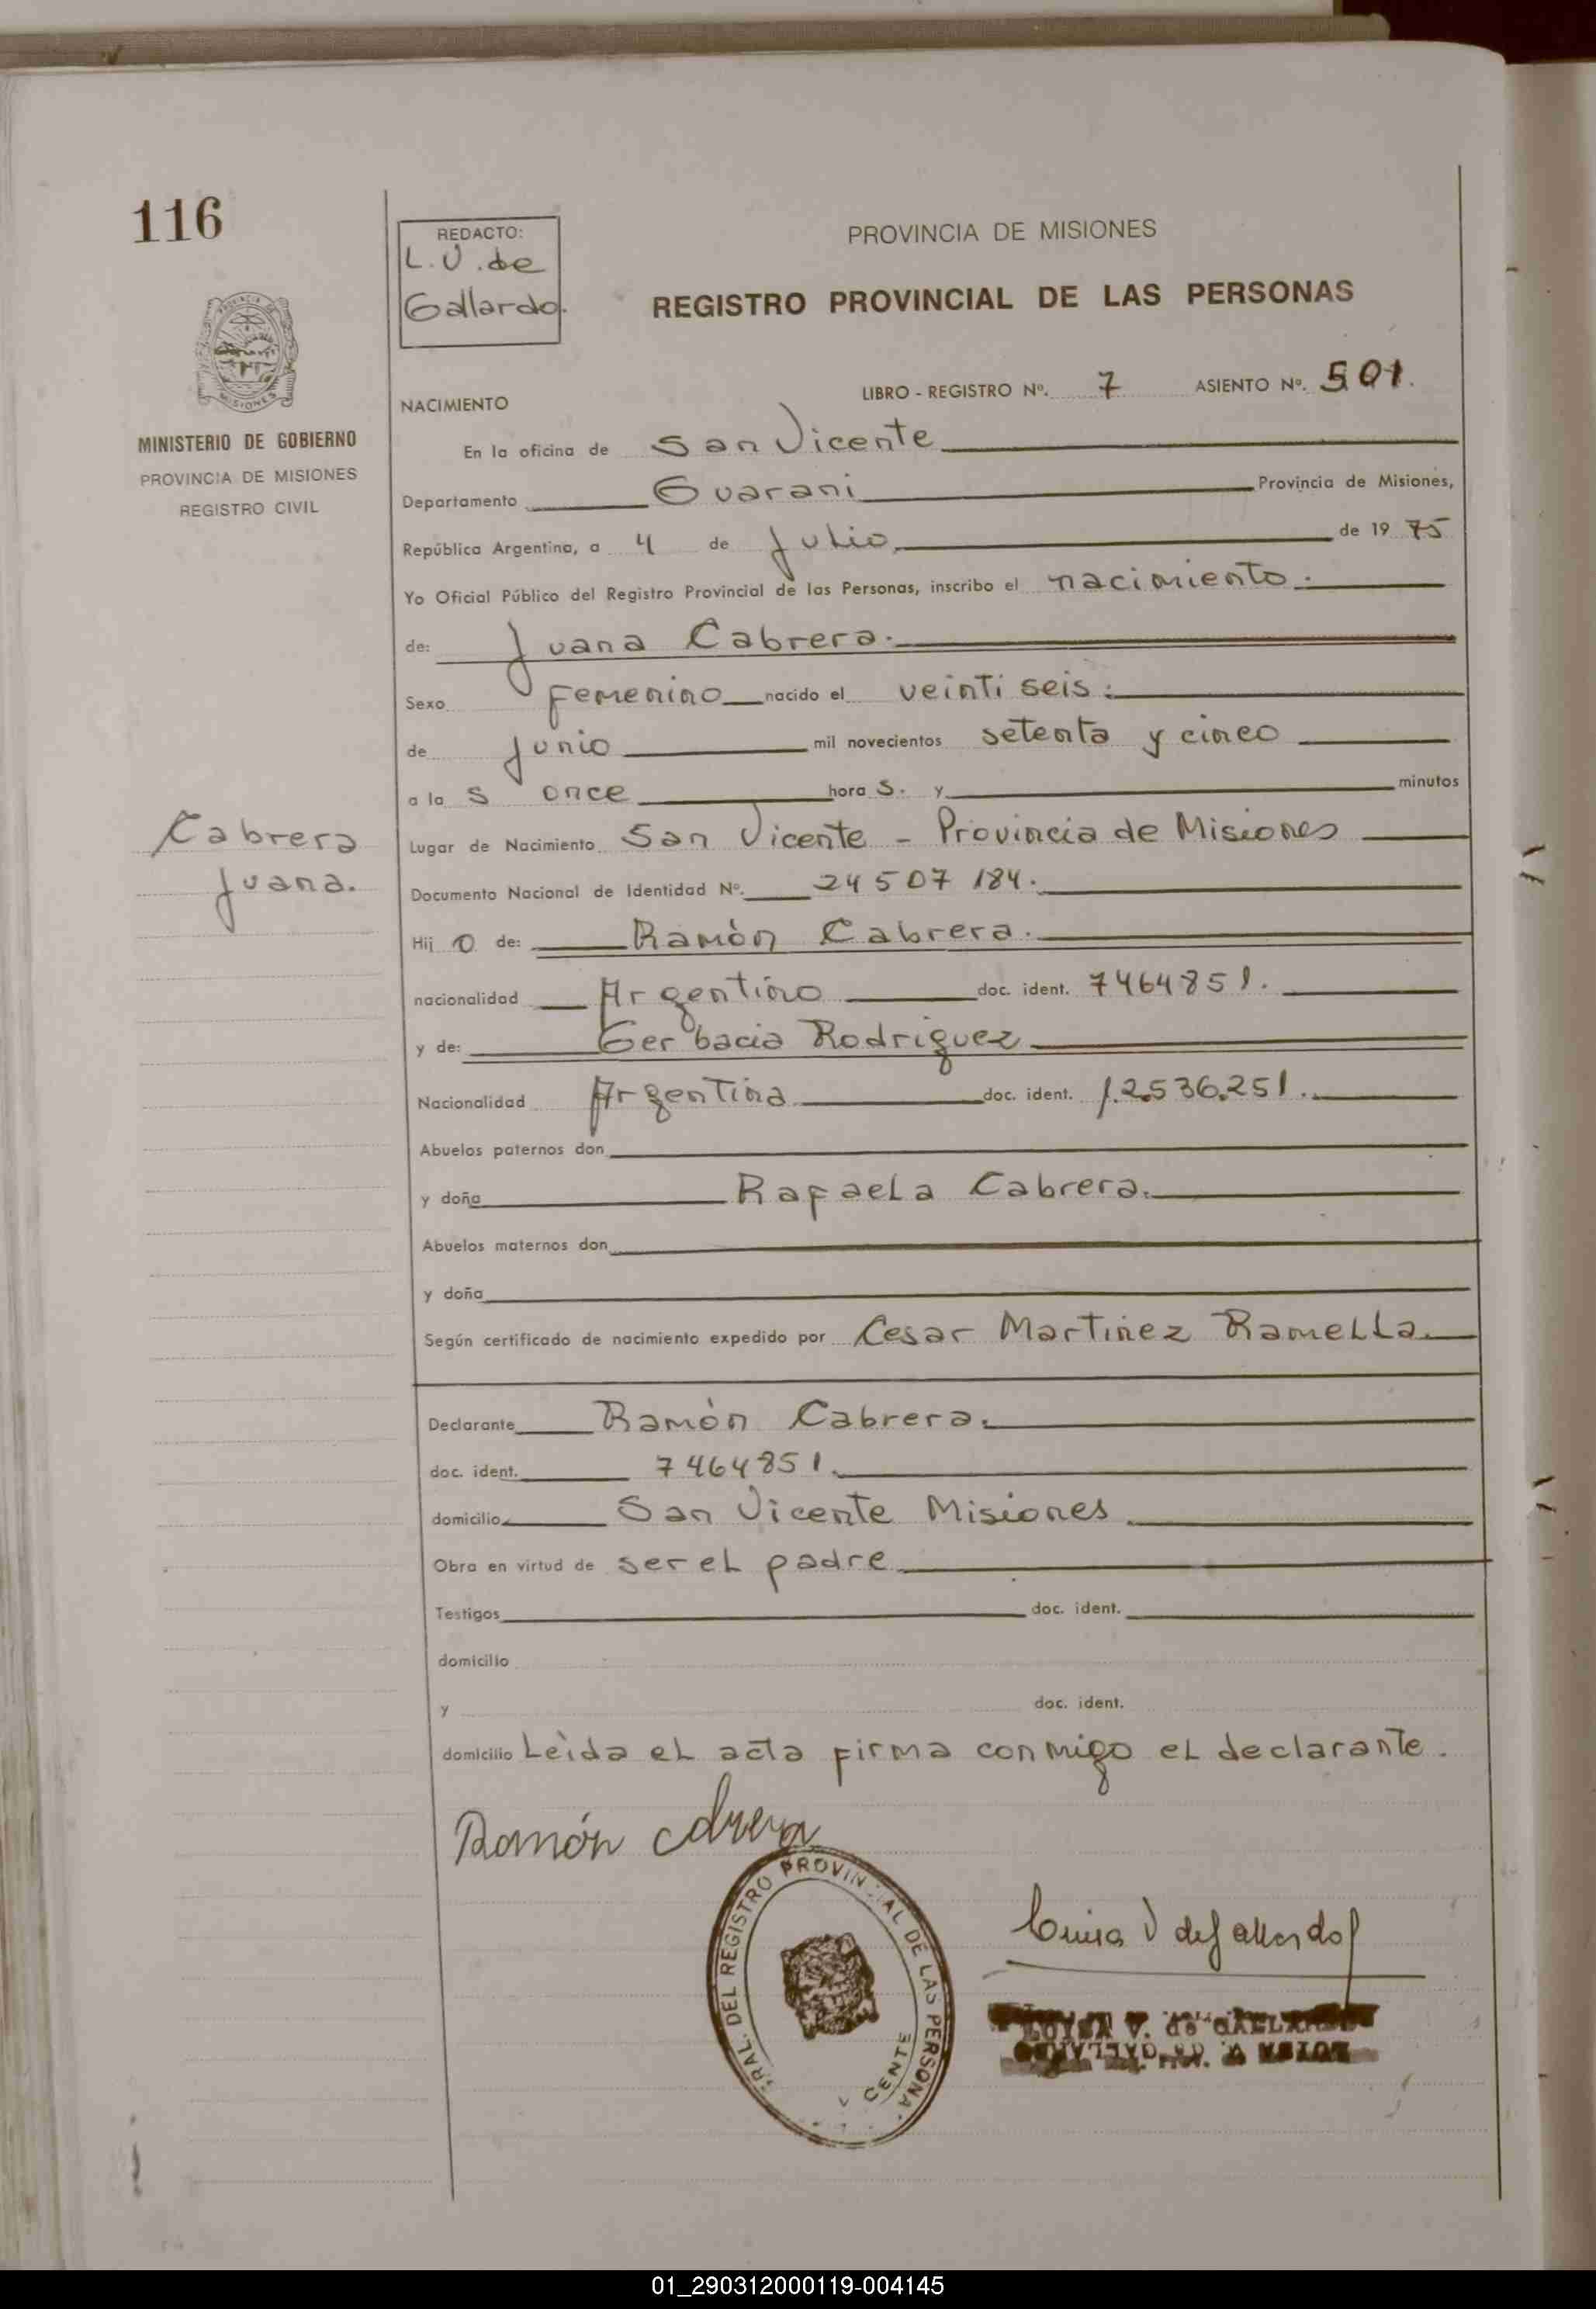 116
REDACTO:
L.V. de
Gallardo.
PROVINCIA DE MISIONES
REGISTRO PROVINCIAL DE LAS PERSONAS
MISIONES
MINISTERIO DE GOBIERNO
PROVINCIA DE MISIONES
REGISTRO CIVIL
LIBRO - REGISTRO Nº. 7 ASIENTO Nº. 501.
NACIMIENTO
En la oficina de San Vicente
Departamento Guarani Provincia de Misiones,
República Argentina, a 4 de Julio, de 19 75
Yo Oficial Público del Registro Provincial de las Personas, inscribo el nacimiento.
de: Juana Cabrera.
Sexo Femenino nacido el veinti seis.
de junio mil novecientos setenta y cinco
a la s once hora s. y minutos
Cabrera
Juana.
Lugar de Nacimiento San Vicente - Provincia de Misiones
Documento Nacional de Identidad Nº. 24 507 184.
Hij o de: Ramòn Cabrera.
nacionalidad Argentino doc. ident. 7464851.
y de: Gerbacia Rodriguez
Nacionalidad Argentina doc. ident. 12.536.251.
Abuelos paternos don
y doña Rafaela Cabrera.
Abuelos maternos don
y doña
Según certificado de nacimiento expedido por Cesar Martinez Ramella.
Declarante Ramòn Cabrera.
doc. ident. 7464851.
domicilio San Vicente Misiones
Obra en virtud de ser el padre
Testigos doc. ident.
domicilio
y doc. ident.
domicilio Leìda el acta firma conmigo el declarante.
Ramón
PROVINCIAL DE LAS PERSONA
RAL. DEL REGISTRO
CENTE
Luisa V de Gallardo
LUISA V. de GALLARDO
LUISA V. de GALLARDO
01_290312000119-004145